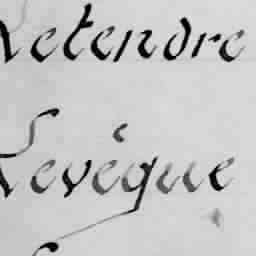 Letendre
Levêque